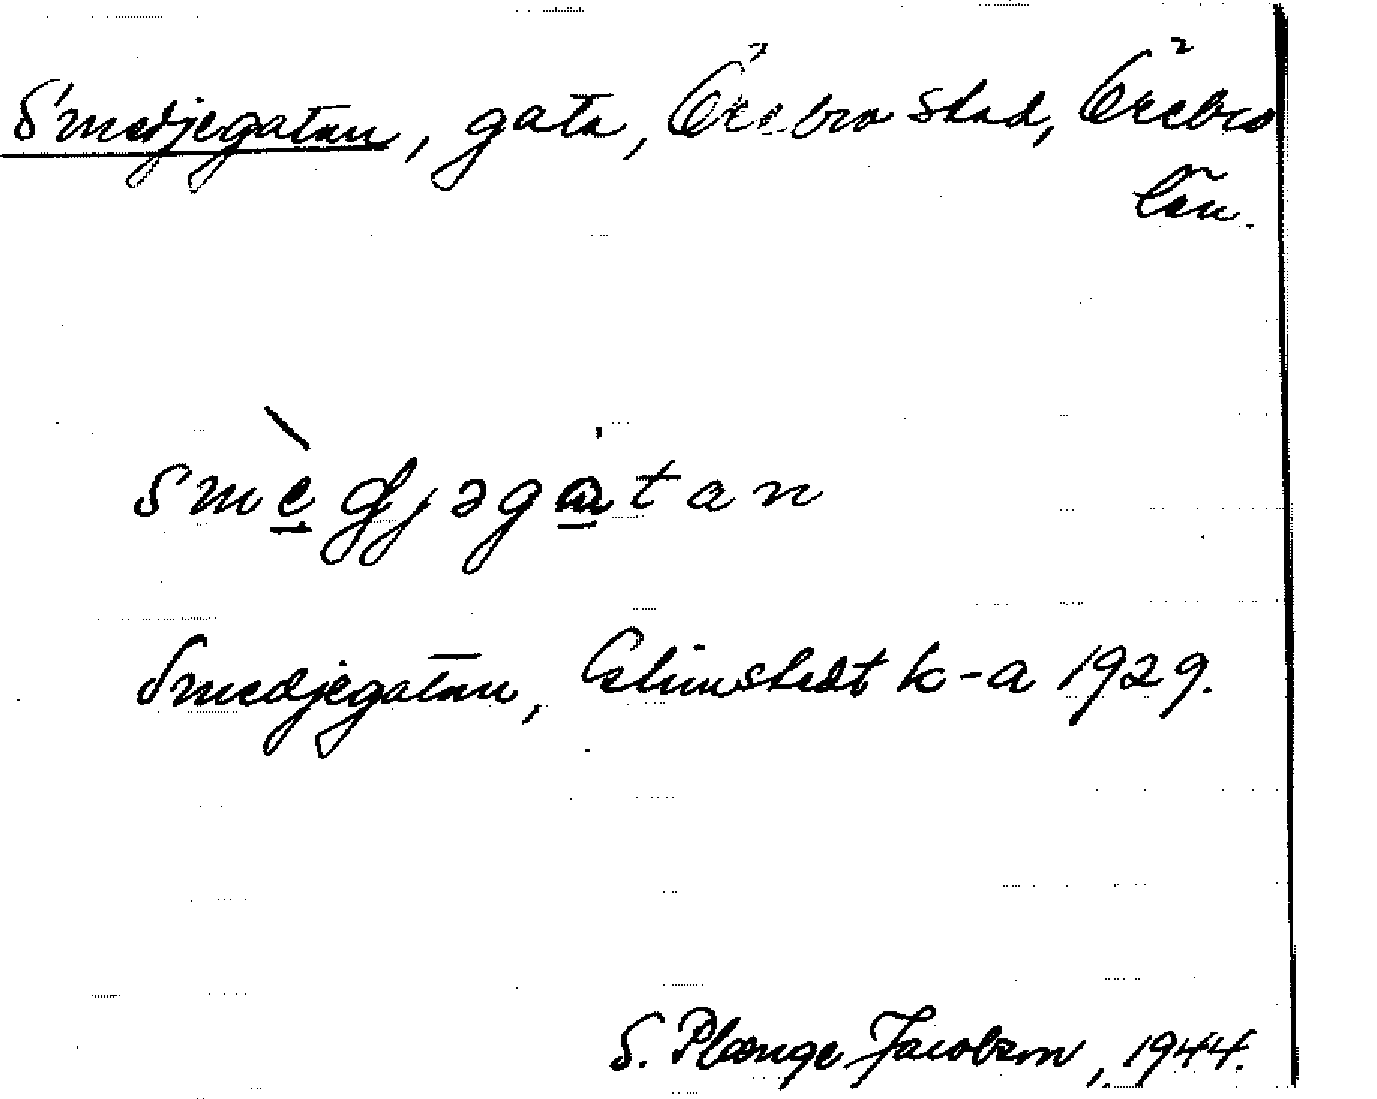 Smedjegatan, gata, Örebro stad, Örebro
län.
smèdjəgatan
Smedjegatan, k-a 1929.
S. Plænge Jacobson, 1944.